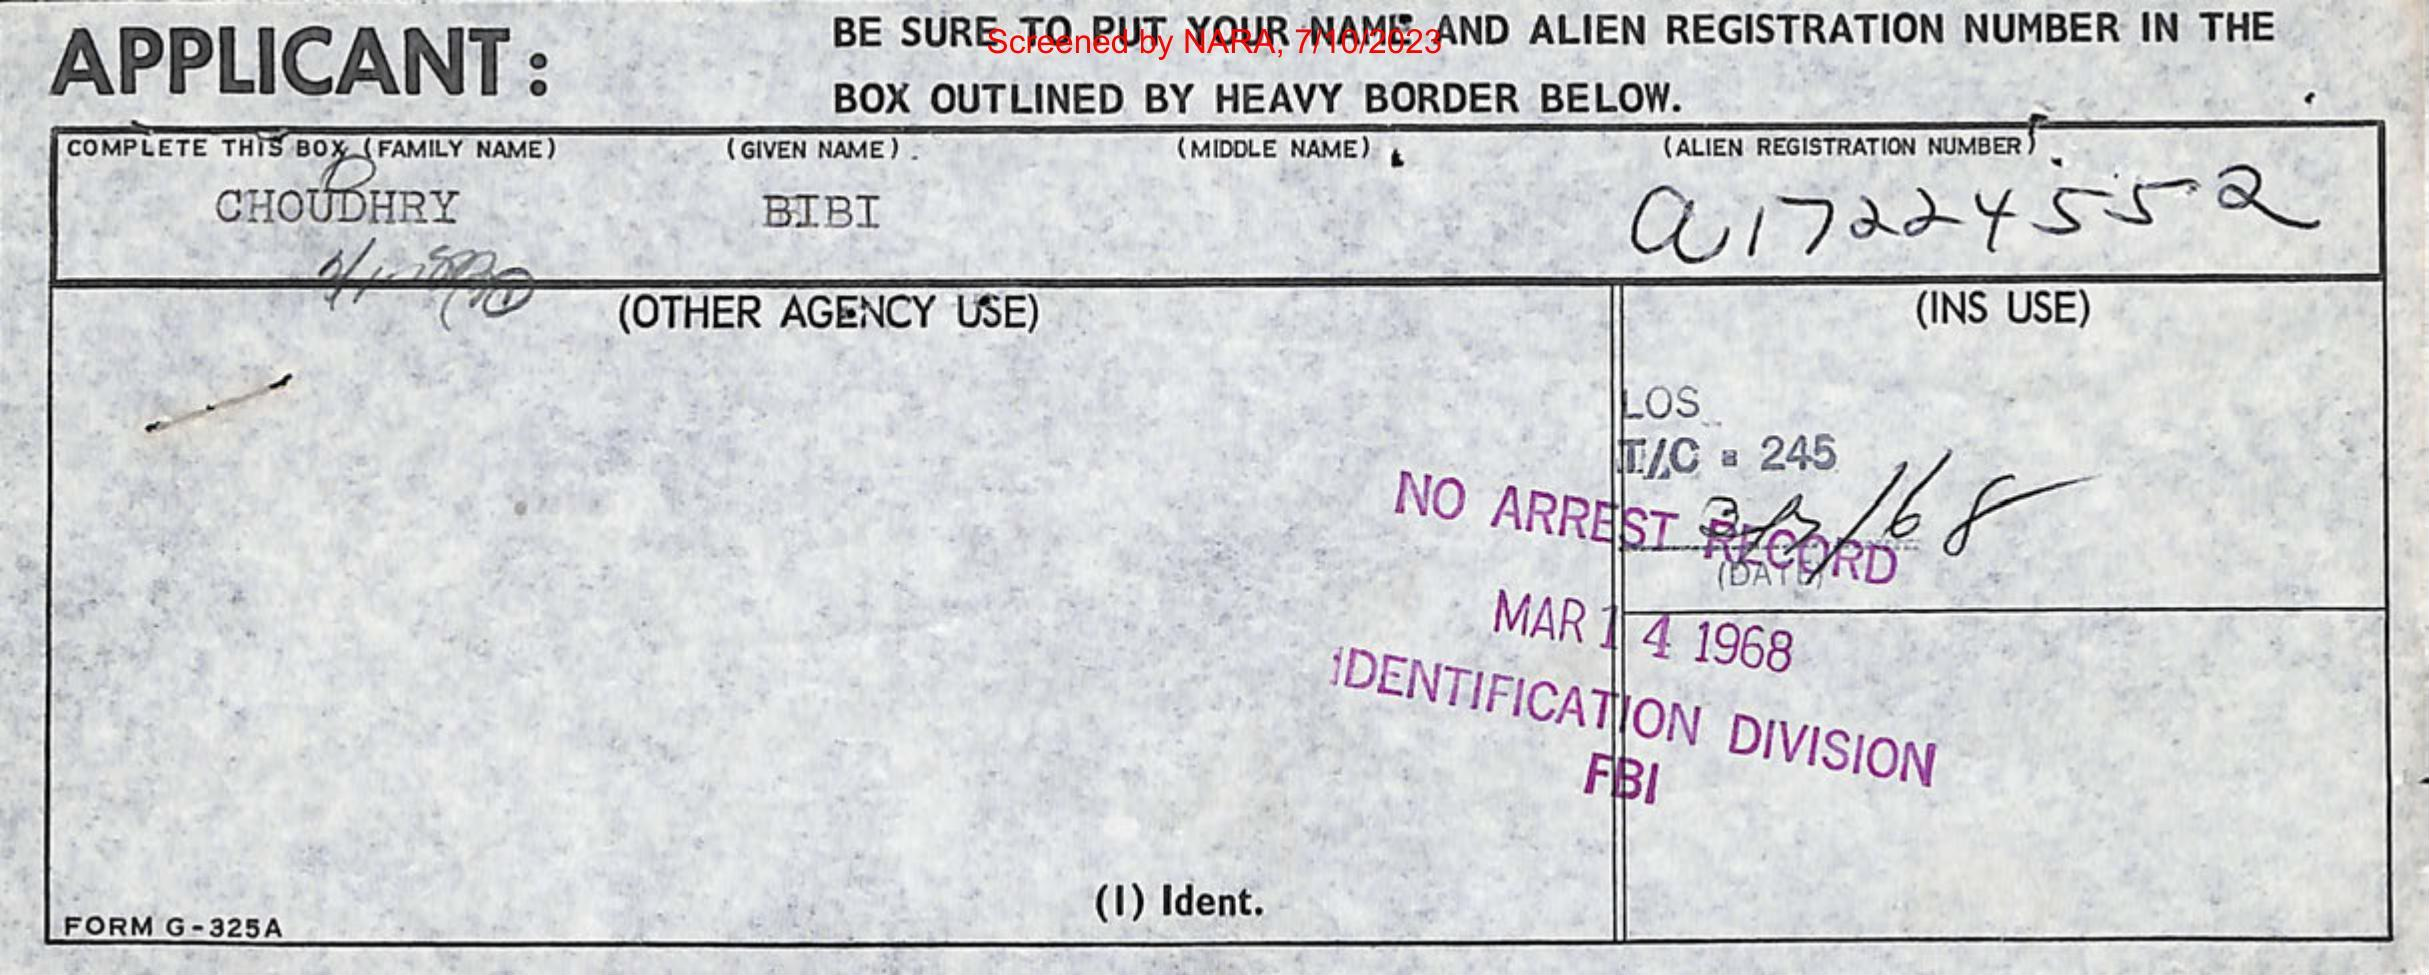 APPLICANT:
BE SURE TO PUT YOUR NAME AND ALIEN REGISTRATION NUMBER IN THE
Screened by NARA, 7/10/2023
BOX OUTLINED BY HEAVY BORDER BELOW.
COMPLETE THIS BOX (FAMILY NAME) (GIVEN NAME) (MIDDLE NAME) (ALIEN REGISTRATION NUMBER)
CHOUDHRY BIBI a17224552
(OTHER AGENCY USE) (INS USE)
LOS
T/C - 245
NO ARREST RECORD
(DATE)
MAR 14 1968
IDENTIFICATION DIVISION
FBI
(1) Ident.
FORM G-325A